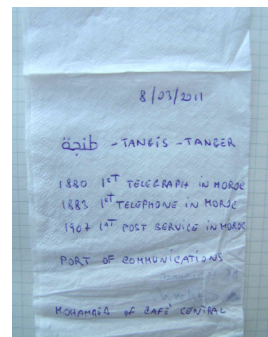 8/03/2011
طنجة - TANGIS - TANGER
1880 1ST TELEGRAPH IN MOROC
1883 1ST TELEPHONE IN MOROC
1907 1ST POST SERVICE IN MOROC
PORT OF COMMUNICATIONS
MOHAMMED OF CAFÉ CENTRAL